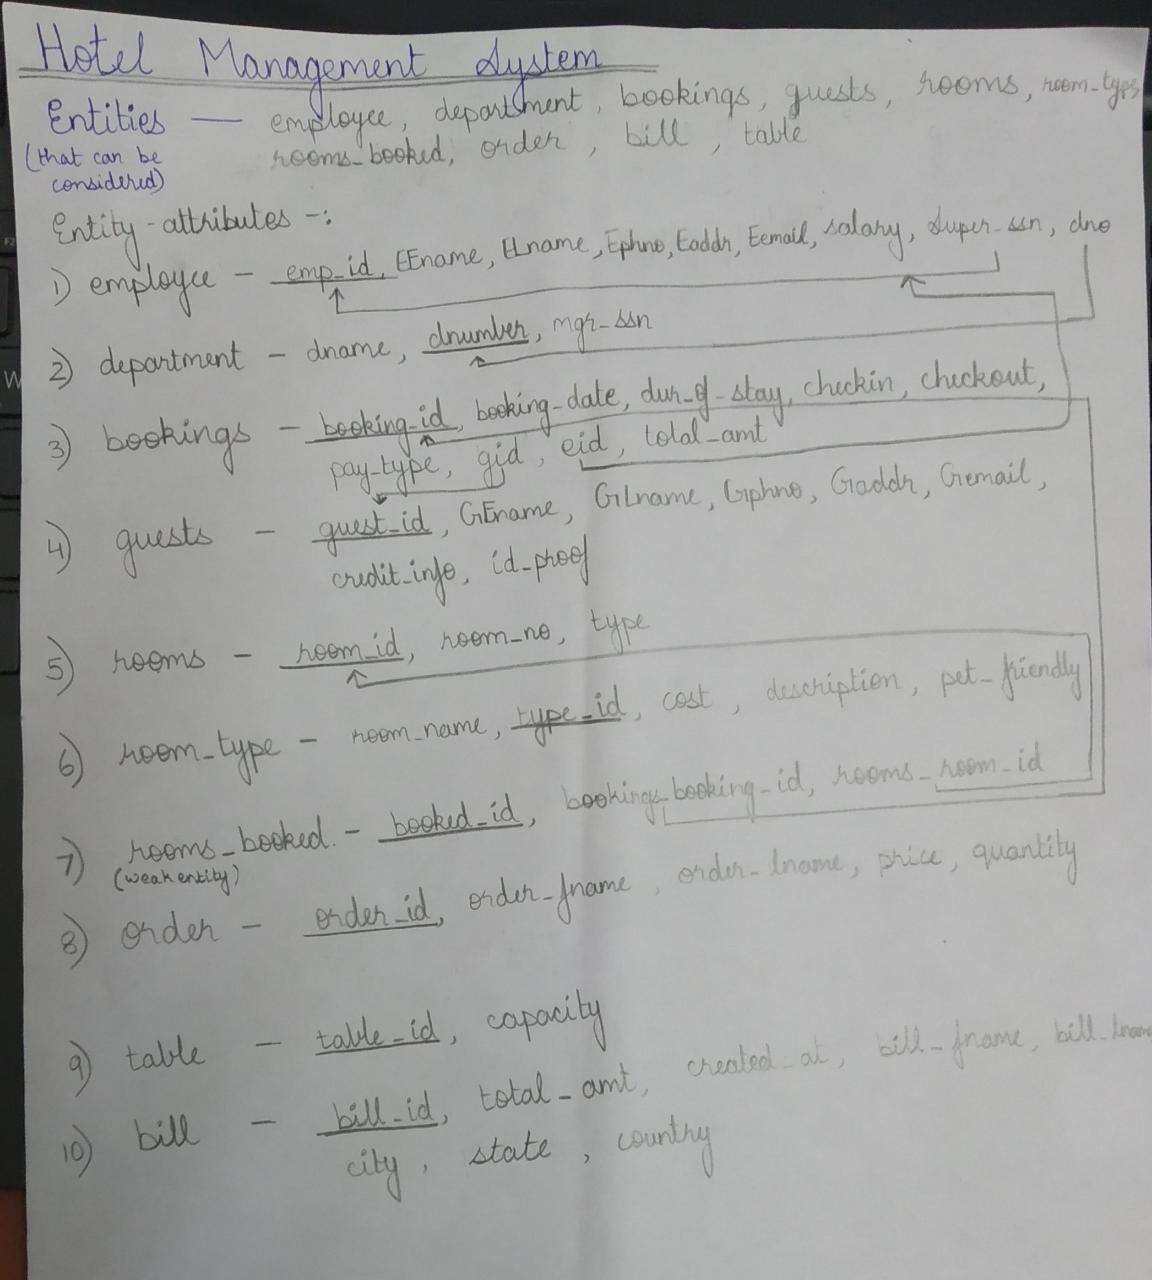 Hotel Management System
Entities — employee, department, bookings, guests, rooms, room-type,
(that can be considered) rooms_booked, order, bill, table
Entity-attributes -:
1) employee - emp_id, EFname, ELname, Ephno, Eaddr, Eemail, salary, super-ssn, dno
2) department - dname, dnumber, mgr-ssn
3) bookings - booking-id, booking-date, dur-of-stay, checkin, checkout,
pay-type, gid, eid, total-amt
4) guests - guest-id, GFname, GLname, Gphno, Gaddr, Gemail,
credit-info, id-proof
5) rooms - room_id, room-no, type
6) room-type - room-name, type-id, cost, description, pet-friendly
7) rooms_booked. - booked_id, bookings_booking-id, rooms_room-id
(weak entity)
8) order - order_id, order-fname, order-lname, price, quantity
9) table - table_id, capacity
10) bill - bill-id, total-amt, created-at, bill-fname, bill-lname
city, state, country